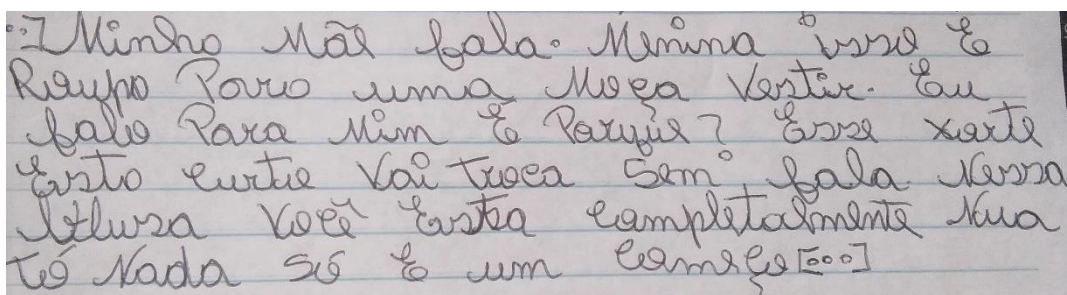 : I Minha Mãe fala. Minina isso E
Roupa Para uma Moça Vestir. Eu
falo Para Mim E Porquê? Esse xorte
Esta curtio Vai troca Sem fala Nessa
blusa Você Esta completalmente Nua
tó Nada Só E um começo [...]